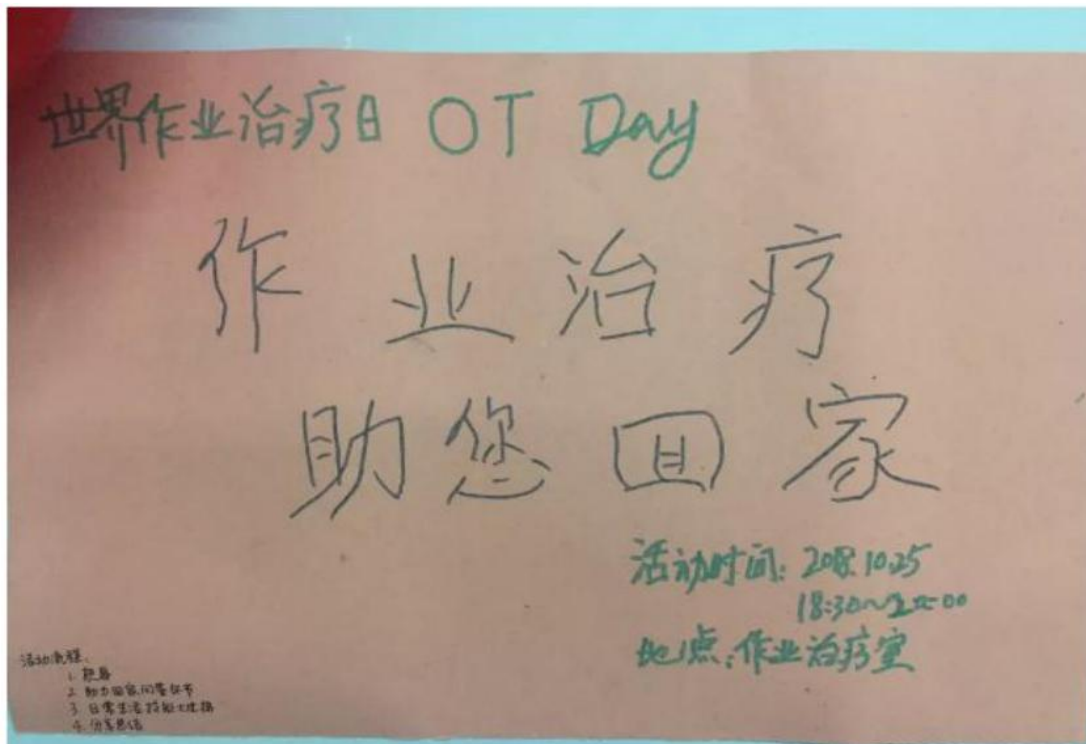 世界作业治疗日 OT Day
作业治疗
助您回家
活动时间: 2018.10.25
18:30~
地点:作业治疗室
活动流程:
1.
2. 助力回家问答环节
3. 日常生活技能大比拼
4. 分享总结